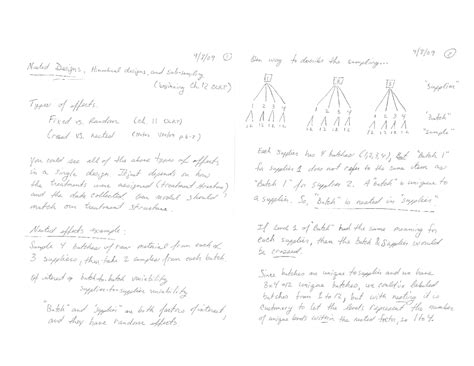 4/7/09 ①
Nested Designs, Hierarchical designs, and subsampling
(beginning Ch. 12 OLRT)
Types of effects.
Fixed vs. Random (ch. 11 OLRT)
Crossed vs. Nested
You could see all of the above types of effects
in a single design. It just depends on how
the treatments were assigned (treatment structure)
and the data collected. Our model should
match our treatment structure.
Nested effects example:
Sample 4 batches of raw material from each of
3 suppliers, then take 2 samples from each batch.
Of interest is batch-to-batch variability
supplier-to-supplier variability
"Batch" and "Supplier" are both factors of interest,
and they have random effects.
4/7/09 ②
One way to describe the sampling...
1 2 3 "Supplier"
1 2 3 4 1 2 3 4 1 2 3 4 "batch"
12 12 12 12 12 12 12 12 12 12 12 12 "sample"
Each supplier has 4 batches (1,2,3,4), but "Batch 1"
for supplier 1 does not refer to the same item as
"Batch 1" for supplier 2. A "batch" is unique to
a supplier. So, "Batch" is nested in "suppliers"
If level 1 of "Batch" had the same meaning for
each supplier, then the batch & supplier would
be crossed.
Since batches are unique to supplier and we have
3x4=12 unique batches, we could've labeled
batches from 1 to 12, but with nesting it is
customary to let the levels represent the number
of unique levels within the nested factor, so 1 to 4.